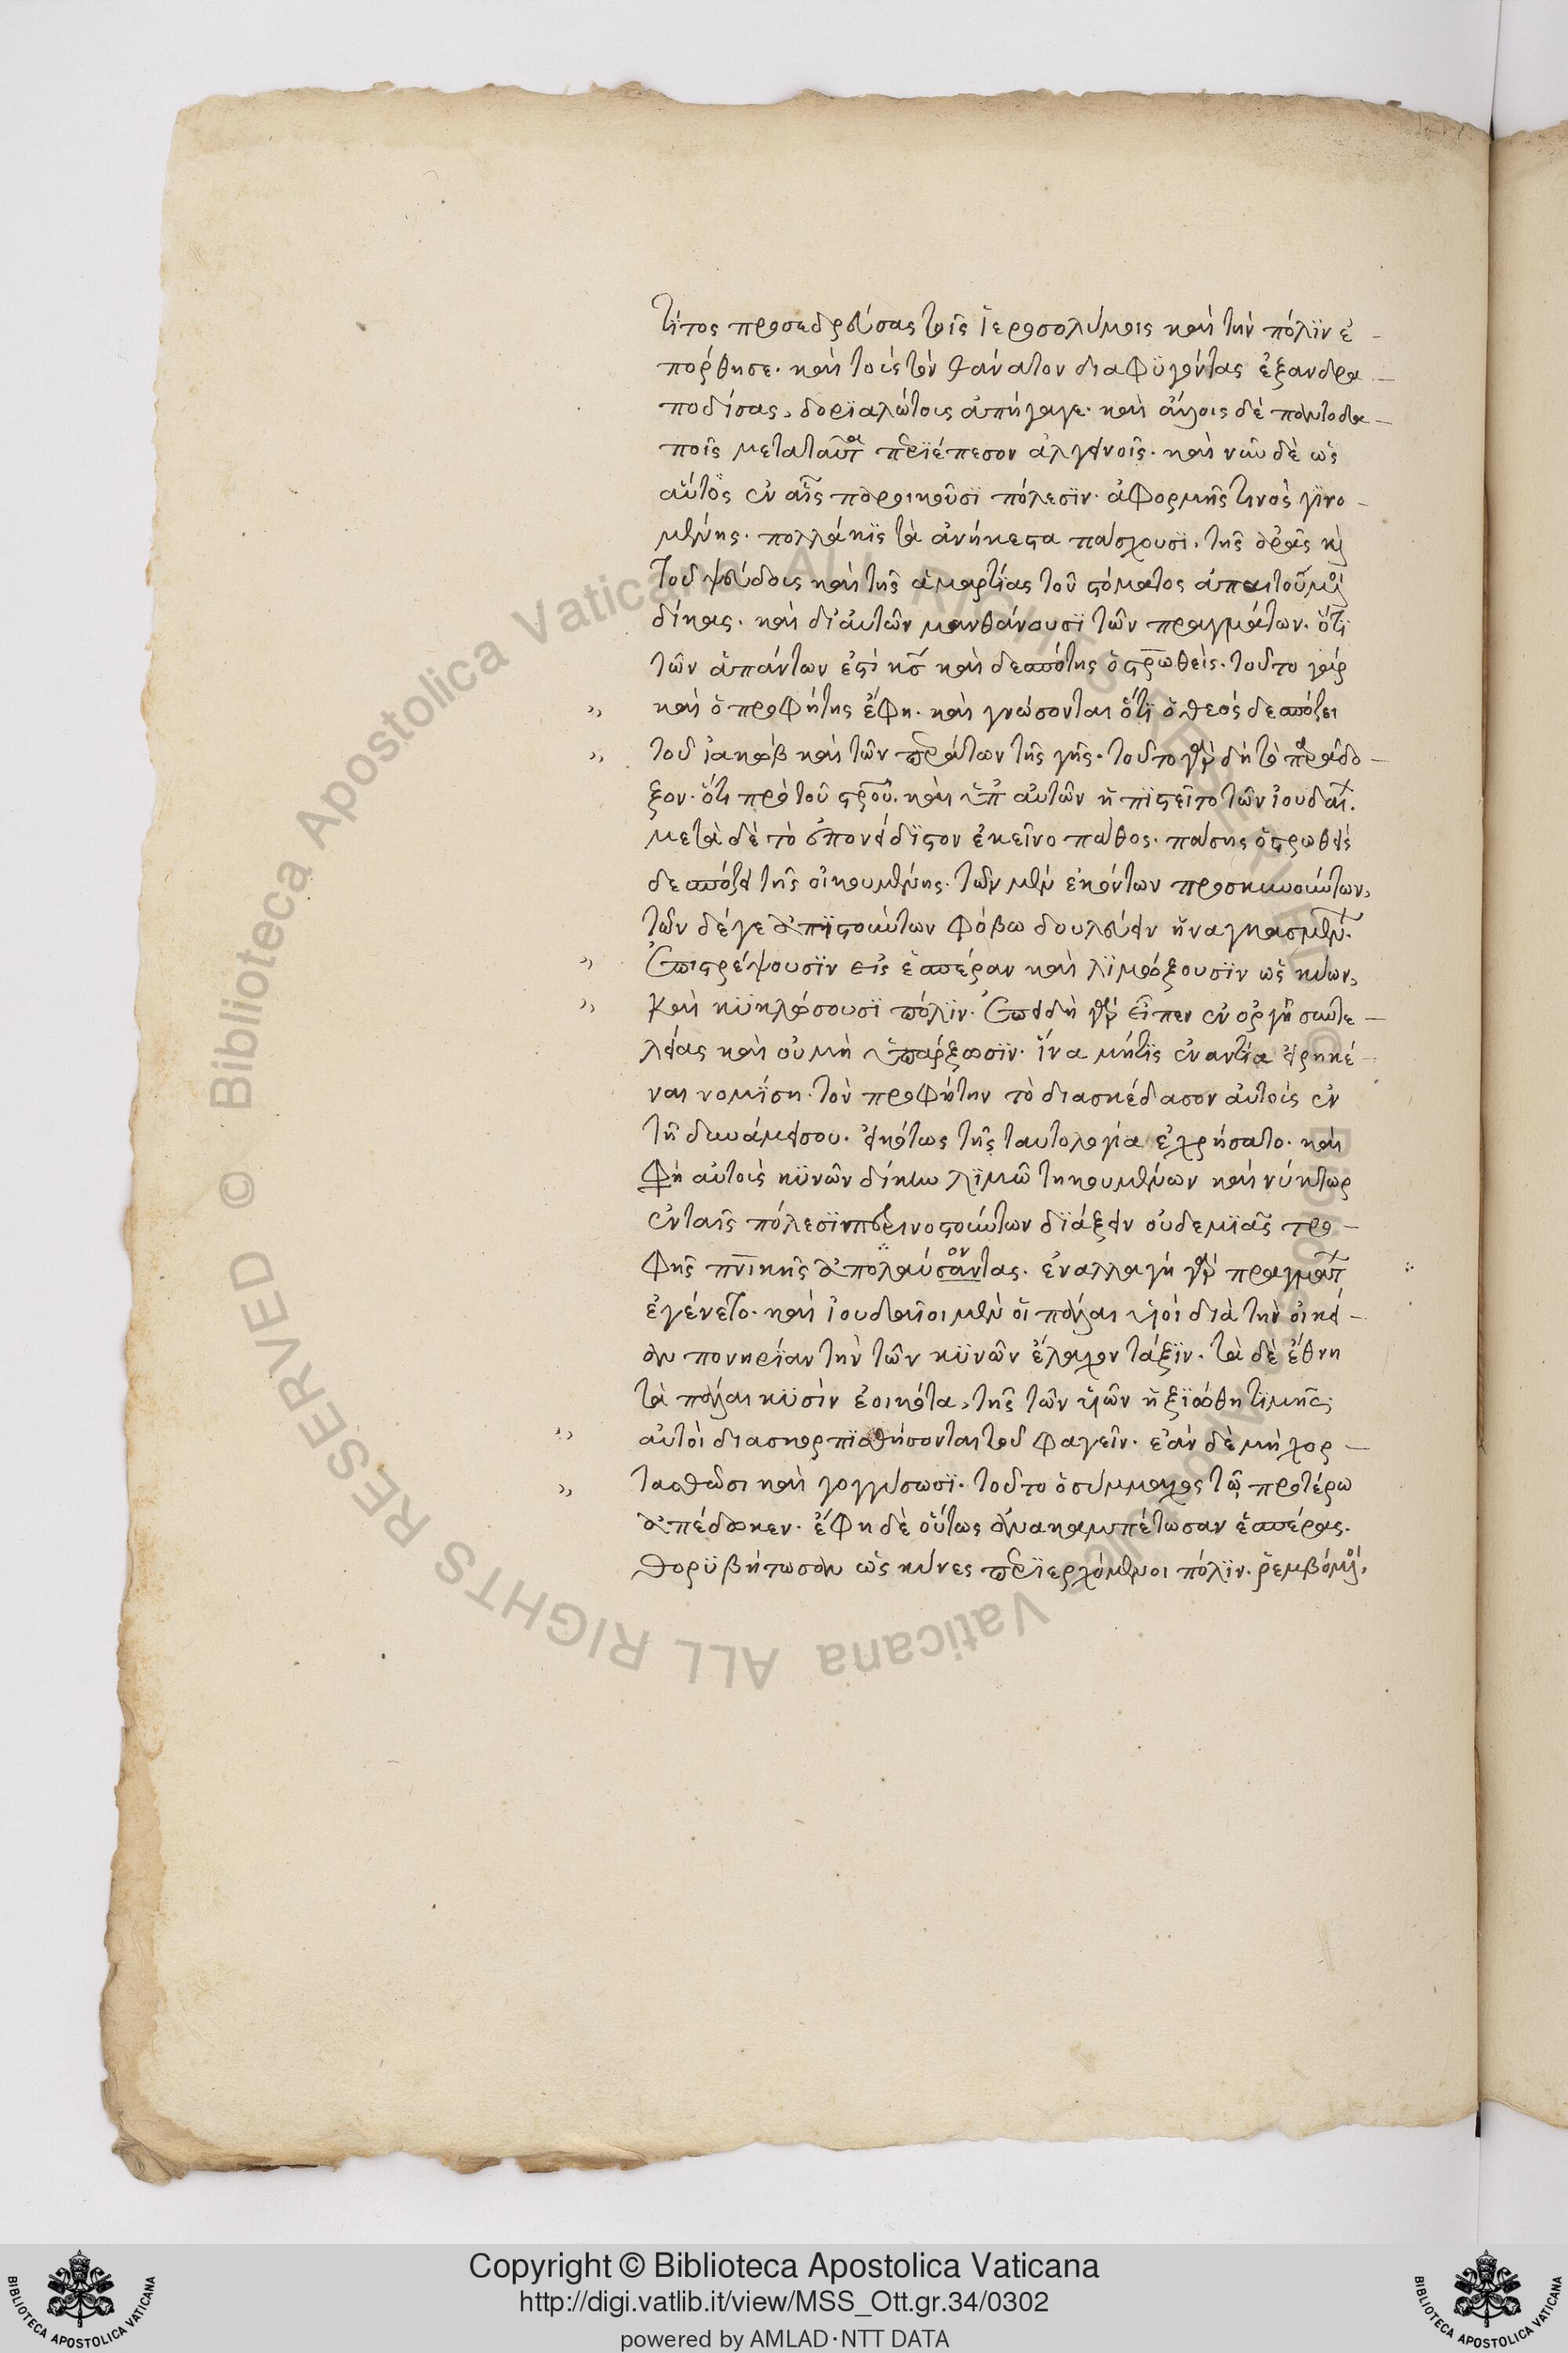 τίτος προσεδρεύσας τοῖς ἱεροσολύμοις καὶ τὴν πόλϊν ἐ-
πόρθησε. καὶ τοὺς τὸν θάνατον διαφϋγόντας ἐξανδρα-
ποδίσας, δορϊαλώτους ἀπήγαγε. καὶ ἄλλοις δὲ παντοδα-
ποῖς μετὰ ταῦτα περϊέπεσον ἀλγεινοῖς. καὶ νῦν δὲ ὡς
αὕτως ἐν αἷς παροικοῦσϊ πόλεσϊν. ἀφορμῆς τινὸς γϊνο-
μένης. πολλάκϊς τὰ ἀνήκεστα πάσχουσϊ. τῆς ἀρᾶς καὶ
τοῦ ψεύδους καὶ τῆς ἁμαρτίας τοῦ στόματος ἀπαιτούμενοι
δίκας. καὶ δι' αὐτῶν μανθάνουσϊ τῶν πραγμάτων. ὅτϊ
τῶν ἁπάντων ἐστὶ κς καὶ δεσπότης ὁ στρωθεὶς. τοῦτο γάρ
καὶ ὁ προφήτης ἔφη. καὶ γνώσονται ὅτϊ ὁ θεός δεσπόζει
τοῦ ἰακώβ καὶ τῶν περάτων τῆς γῆς. τοῦτο γὰρ δὴ τὸ παράδο-
ξον. ὅτι πρὸ τοῦ στροῦ. καὶ ὑπ' αὐτῶν ἠπϊστεῖτο τῶν ἰουδαίων.
μετὰ δὲ τὸ ἐπονείδϊστον ἐκεῖνο πάθος. πάσης ὁ στρωθεὶς
δεσπόζει τῆς οἰκουμένης. τῶν μὲν ἑκόντων προσκυνούντων,
τῶν δέ γε ἀπϊστούντων φόβω δουλεύειν ἠναγκασμένων.
Ἐπιστρέψουσϊν εἰς ἑσπέραν καὶ λϊμώξουσϊν ὡς κύων,
καὶ κϋκλώσουσϊ πόλϊν. Ἐπειδὴ γὰρ εἶπεν ἐν ὀργῆ συντε-
λείας καὶ οὐ μὴ ὑπάρξωσϊν. ἵνα μήτϊς ἐναντία εἰρηκέ-
ναι νομϊση. τὸν προφήτην τὸ διασκέδασον αὐτοὺς ἐν
τῆ δυνάμει σου. εἰκότως τῆς ταυτολογία ἐχρήσατο. καὶ
φὴ αὐτοὺς κϋνῶν δίκην λϊμῶ τηκουμένων καὶ νύκτωρ
ἐν ταῖς πόλεσϊν περινοστούντων δϊάξειν οὐδεμϊᾶς τρο-
φῆς πνικῆς ἀπολαύσαντας. ἐναλλαγὴ γὰρ πραγμάτων
ἐγένετο. καὶ ἰουδαῖοι μὲν οἱ πάλαι υἱοὶ διὰ τὴν οἰκεί-
αν πονηρίαν τὴν τῶν κϋνῶν ἔλαχον τάξϊν. τὰ δὲ ἔθνη
τὰ πάλαι κϋσὶν ἐοικότα, τῆς τῶν υἱῶν ἠξϊώθη τϊμῆς;
αὐτοὶ διασκορπϊσθήσονται τοῦ φαγεῖν. ἐὰν δὲ μὴ χορ-
τασθῶσι καὶ γογγύσωσϊ. τοῦτο ὁ σύμμαχος τῷ προτέρω
ἀπέδωκεν. ἔφη δὲ οὕτως ἀνακαμπέτωσαν ἑσπέρας.
θορϋβήτωσαν ὡς κύνες περϊερχόμενοι πόλϊν. ῥεμβόμενοι.
Copyright © Biblioteca Apostolica Vaticana
http://digi.vatlib.it/view/MSS_Ott.gr.34/0302
powered by AMLAD·NTT DATA